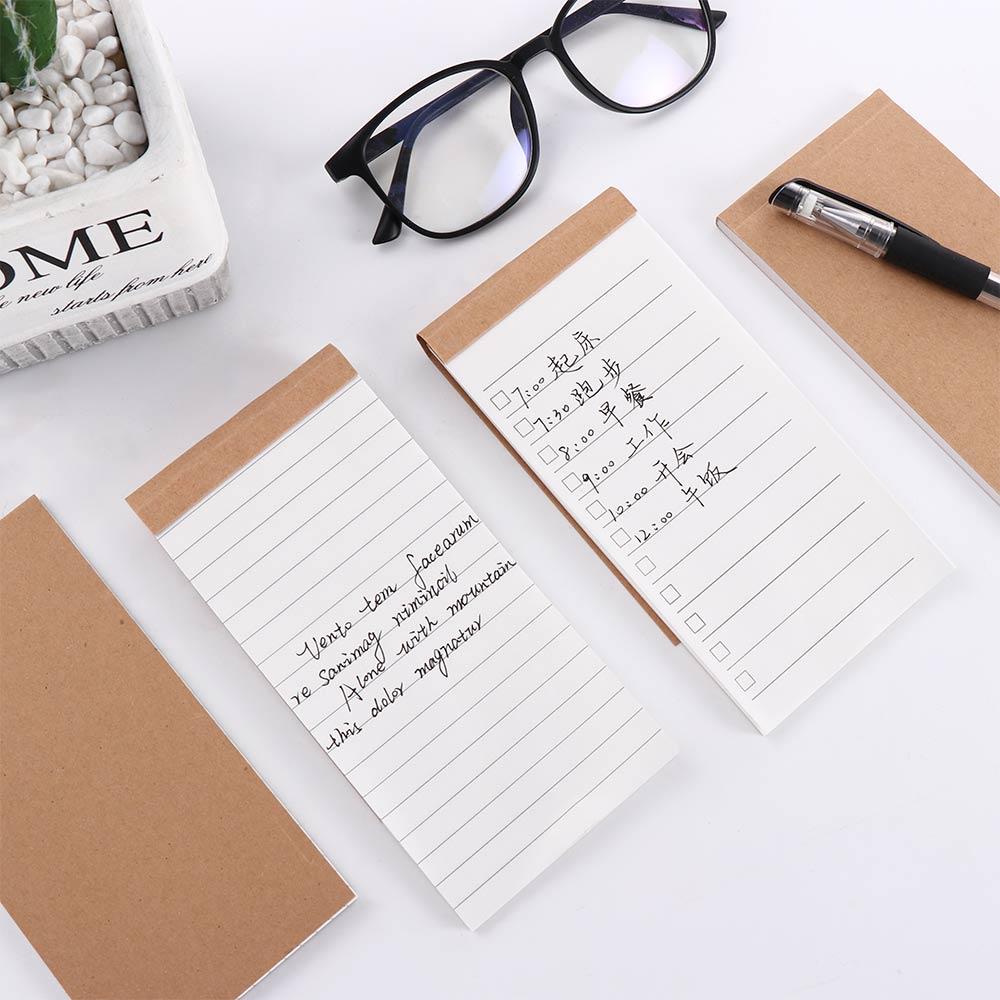 OME
new life
starts from here
Vento tem facearum
re sanimag nimimoil
Alone with mountain
this dolor magnatur
7:00 起床
7:30 跑步
8:00 早餐
9:00 工作
10:00 开会
12:00 午饭